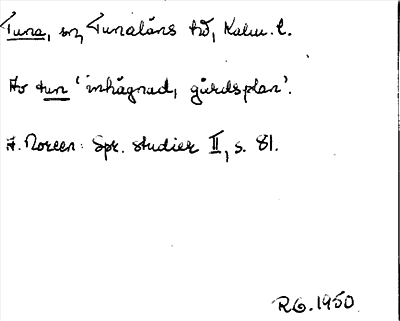 Tuna, sn, Tunaläns hd, Kalm. l.
Av tun 'inhägnad, gårdsplan'.
A. Noreen: Spr. studier II, s. 81.
R.G. 1950